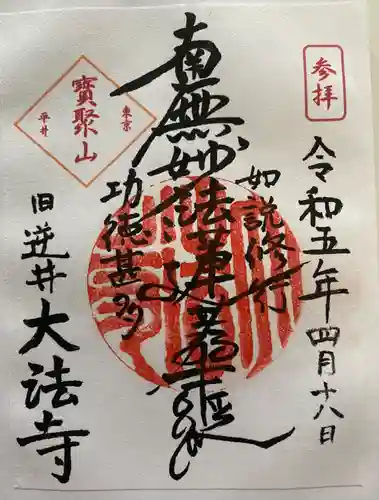 参拝
令和五年四月十八日
如説修行
南無妙法蓮華経
功徳甚多
東京
寶聚山
平井
旧逆井
大法寺